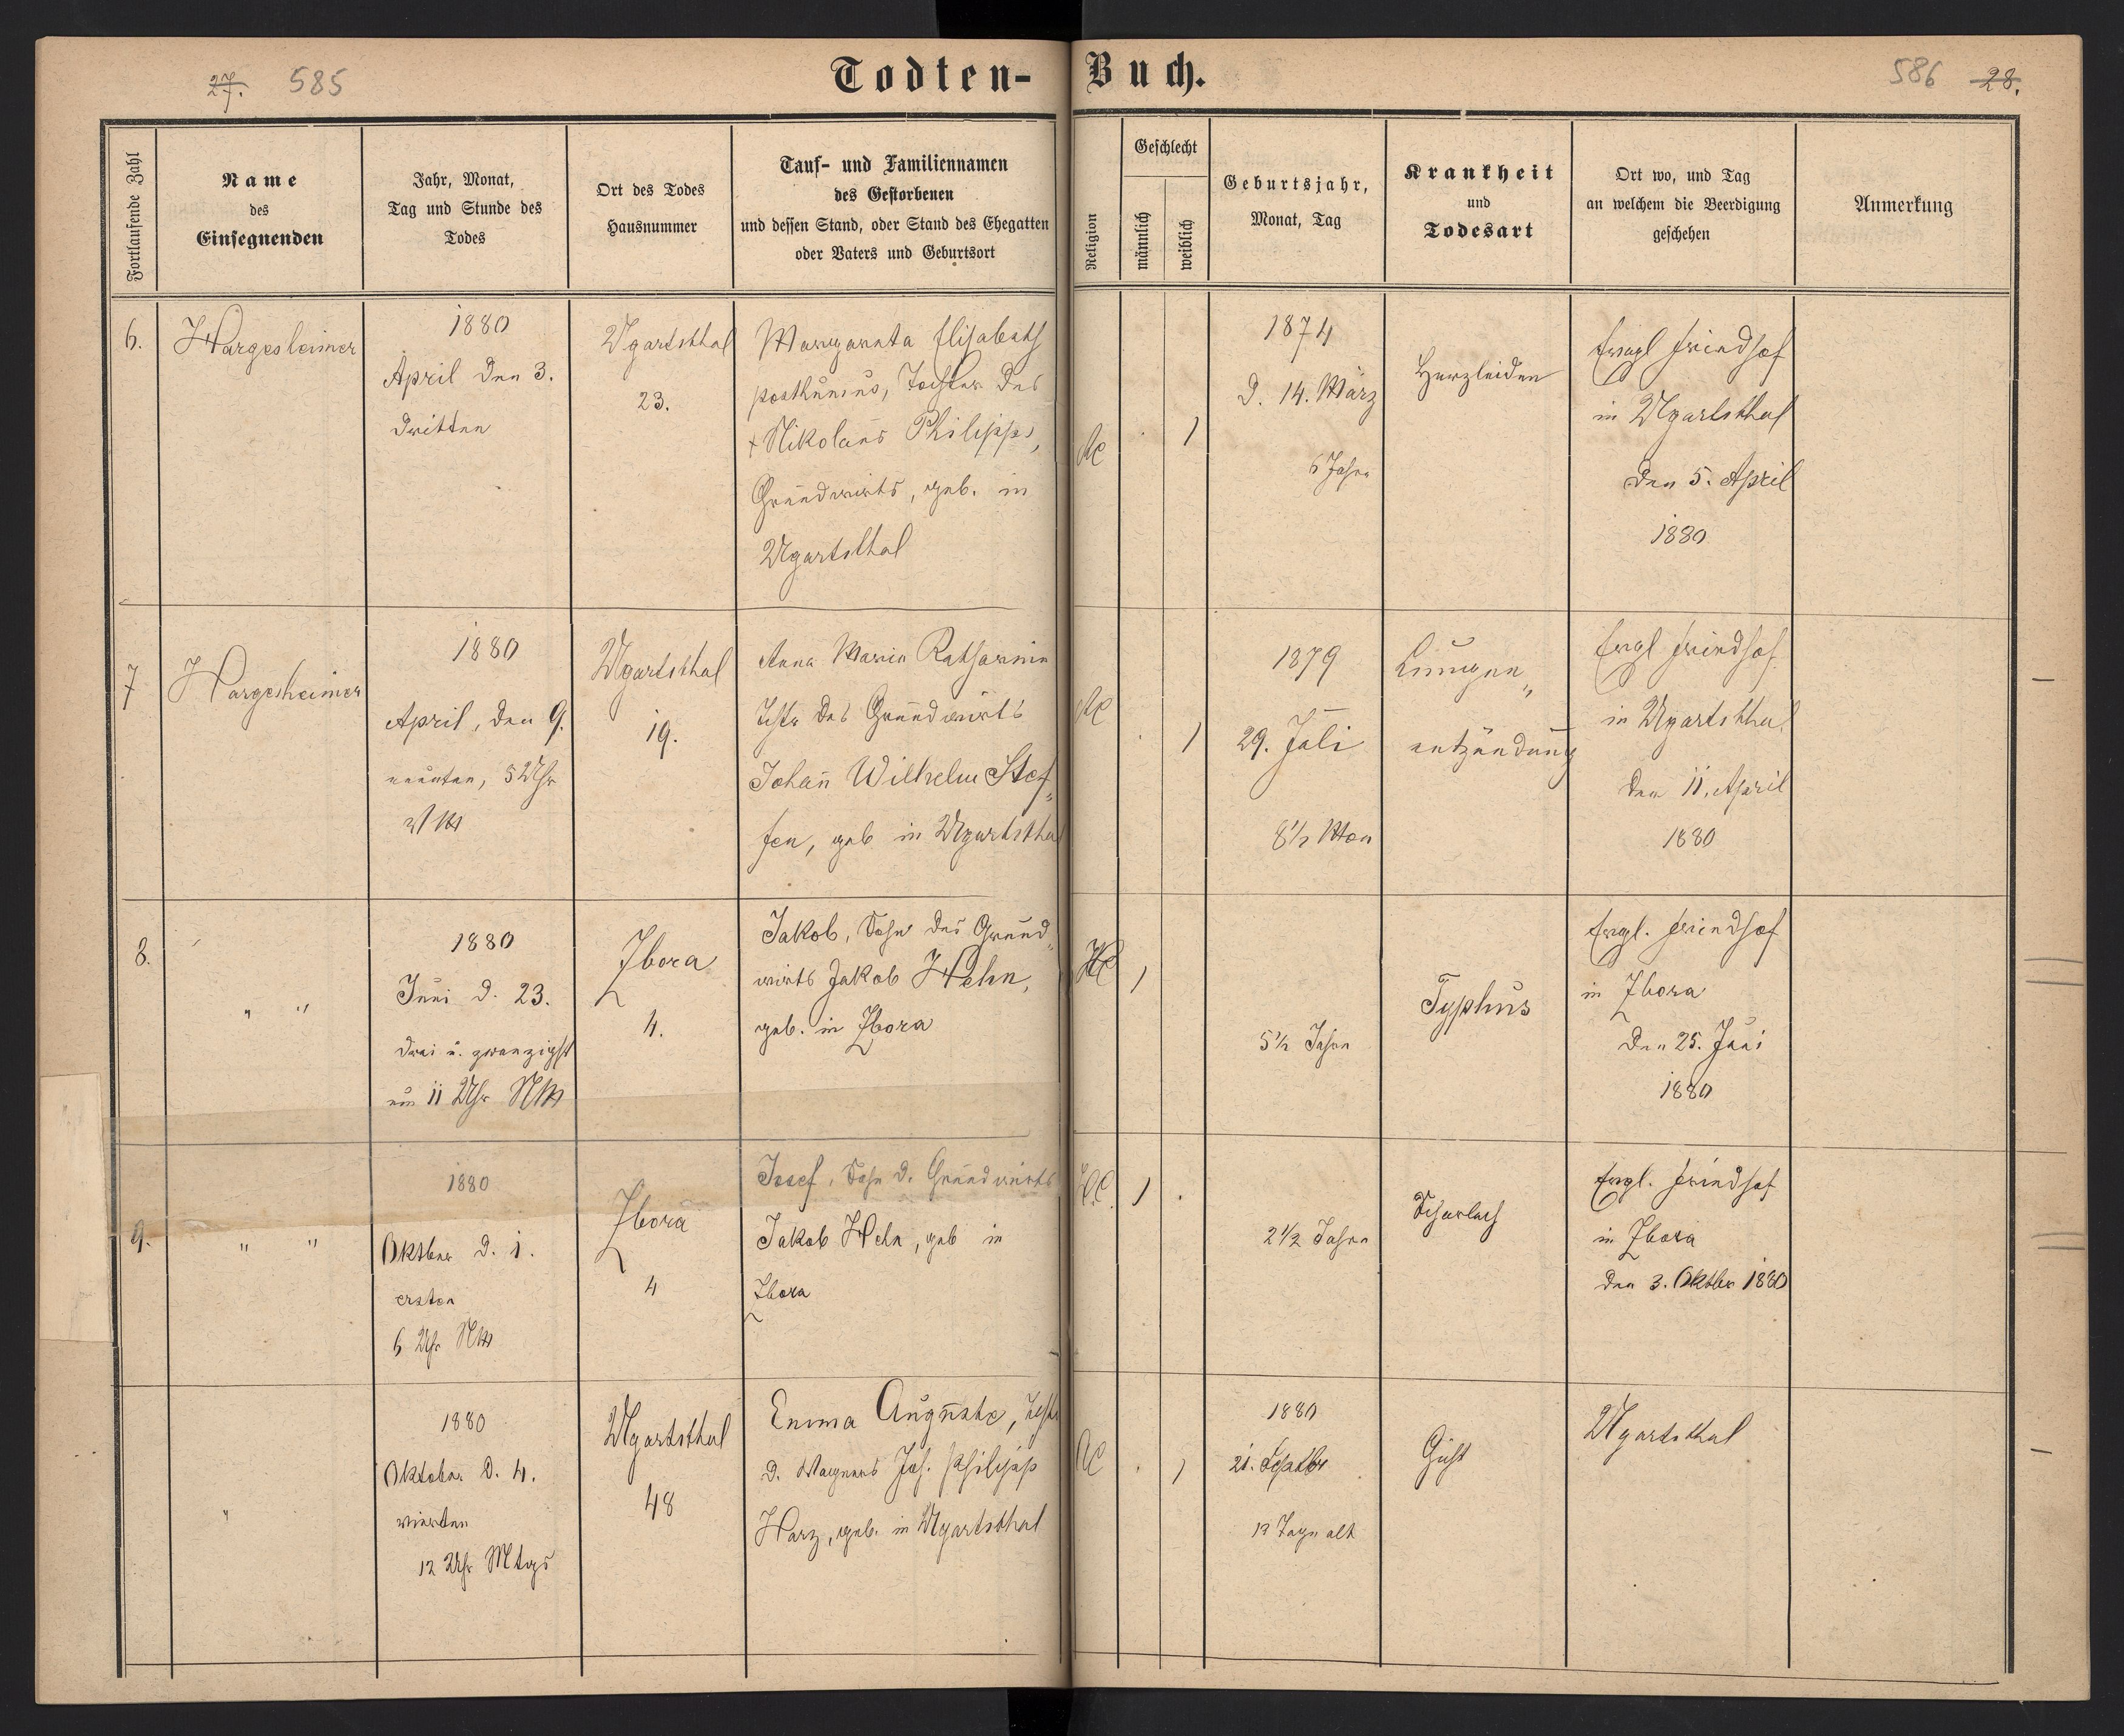 27. 585
Todten-Buch.
586 28.
Fortlaufende Zahl
Name
des
Einsegnenden
Jahr, Monat,
Tag und Stunde des
Todes
Ort des Todes
Hausnummer
Tauf- und Familiennamen
des Gestorbenen
und dessen Stand, oder Stand des Ehegatten
oder Vaters und Geburtsort
Religion
Geschlecht
männlich
weiblich
Geburtsjahr,
Monat, Tag
Krankheit
und
Todesart
Ort wo, und Tag
an welchem die Beerdigung
geschehen
Anmerkung
6.
Hargesheimer
1880
April den 3.
dritten
Ugartsthal
23.
Margareta Elisabeth
posthumus, Tochter des
+ Nikolaus Philipps,
Grundwirts, geb. in
Ugartsthal
1
1874
d. 14. März
6 Jahre
Herzleiden
Evagl Friedhof
in Ugartsthal
den 5. April
1880
7
Hargesheimer
1880
April, den 9.
neunten, 5 Uhr
Ugartsthal
19.
Anna Maria Katharina
Tchtr des Grundwirts
Johañ Wilhelm Stef„
fen, geb in Ugartsthal
1
1879
29. Juli
8½ Mon
Lungen„
entzündung
Evgl Friedhof
in Ugartsthal
den 11. April
1880
8.
" "
1880
Juni d. 23.
drei u. zwanzigst
um 11 Uhr NM
Zbora
4.
Jakob, Sohn des Grund„
wirts Jakob Hehn,
geb. in Zbora
HC
1
5½ Jahre
Typhus
Evgl. Friedhof
in Zbora
den 25. Juni
1880
9.
" "
1880
Oktber d. 1.
ersten
6 Uhr NM
Zbora
4
Josef, Sohn d. Grundwirts
Jakob Hehn, geb in
Zbora
HC.
1
2½ Jahre
Scharlach
Evgl. Friedhof
in Zbora
den 3. Oktbr 1880
"
1880
Oktober d. 4.
vierten
12 Uhr Mtgs
Ugartsthal
48
Emma Auguste, Tchtr
d. Wagners Joh. Philipp
Harz, geb. in Ugartsthal
1
1880
21. Septbr
13 Tage alt
Ugartsthal